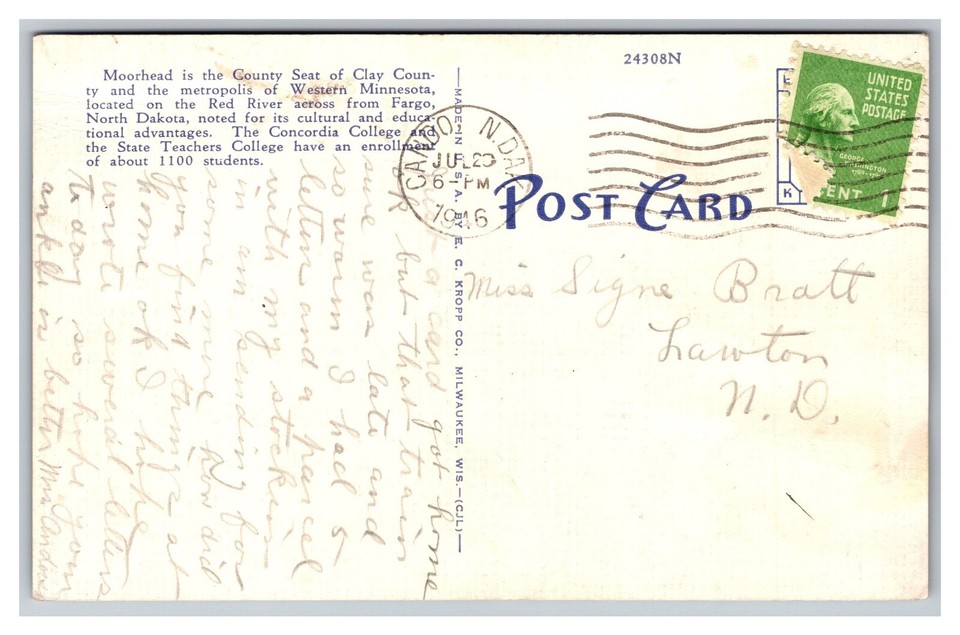 Moorhead is the County Seat of Clay Coun-
ty and the metropolis of Western Minnesota,
located on the Red River across from Fargo,
North Dakota, noted for its cultural and educa-
tional advantages. The Concordia College and
the State Teachers College have an enrollment
of about 1100 students.
24308N
UNITED
STATES
POSTAGE
GEORGE
WASHINGTON
CENT 1
K
N DAK
JUL 23
6-PM
1946
POST CARD
MADE IN U. S. A. BY E. C. KROPP CO., MILWAUKEE, WIS.—(CJL)
Miss Signe Bratt
Lawton
N. D.
a card got home
but that train
sure was late and
so warm I had 5
letters and a parcel
with my stockin
am sending for
some more How did
you find things at
home ok I hope
wrote several letters
to day so hope your
ankle is better Mrs